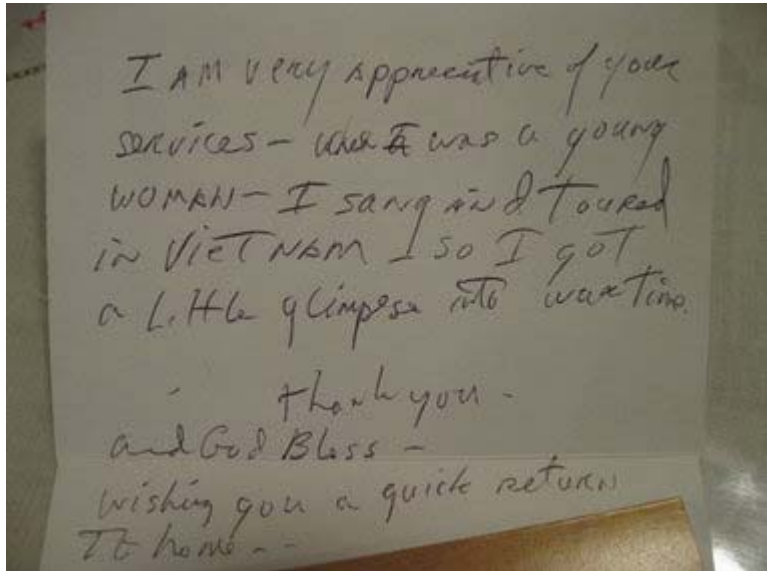 I AM very appreciative of your
services - when I was a young
WOMAN - I sang AND Toured
in VIETNAM so I got
a little glimpse into wartime.
thank you -
and God Bless -
wishing you a quick return
To home - -